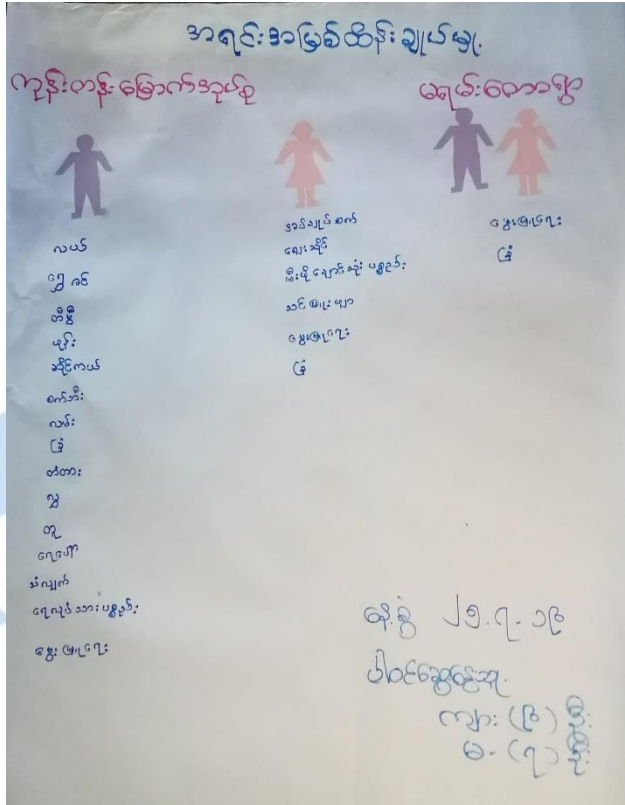 အရင်းအမြစ်ထိန်းချုပ်မှု့
ကုန်းတန်းမြောက်အုပ်စု
မရမ်းတောရွာ
လယ်
ရွှေငင်
တီဗွီ
ဖုန်း
ဆိုင်ကယ်
စက်ဘီး
လမ်း
ခြံ
တံတား
လွှ
တူ
သံလျက်
ရေလုပ်သားပစ္စည်း
မွေးမြူရေး
အပ်ချုပ်စက်
ဈေးဆိုင်
မီးဖိုချောင်သုံး ပစ္စည်း
သင်ဖြူးဖျာ
မွေးမြူရေး
ခြံ
မွေးမြူရေး
ခြံ
နေ့စွဲ ၂၅.၇.၁၉
ပါဝင်ဆွေးနွေးသူ
ကျား (၉) ဦး
မ - (၇) ဦး